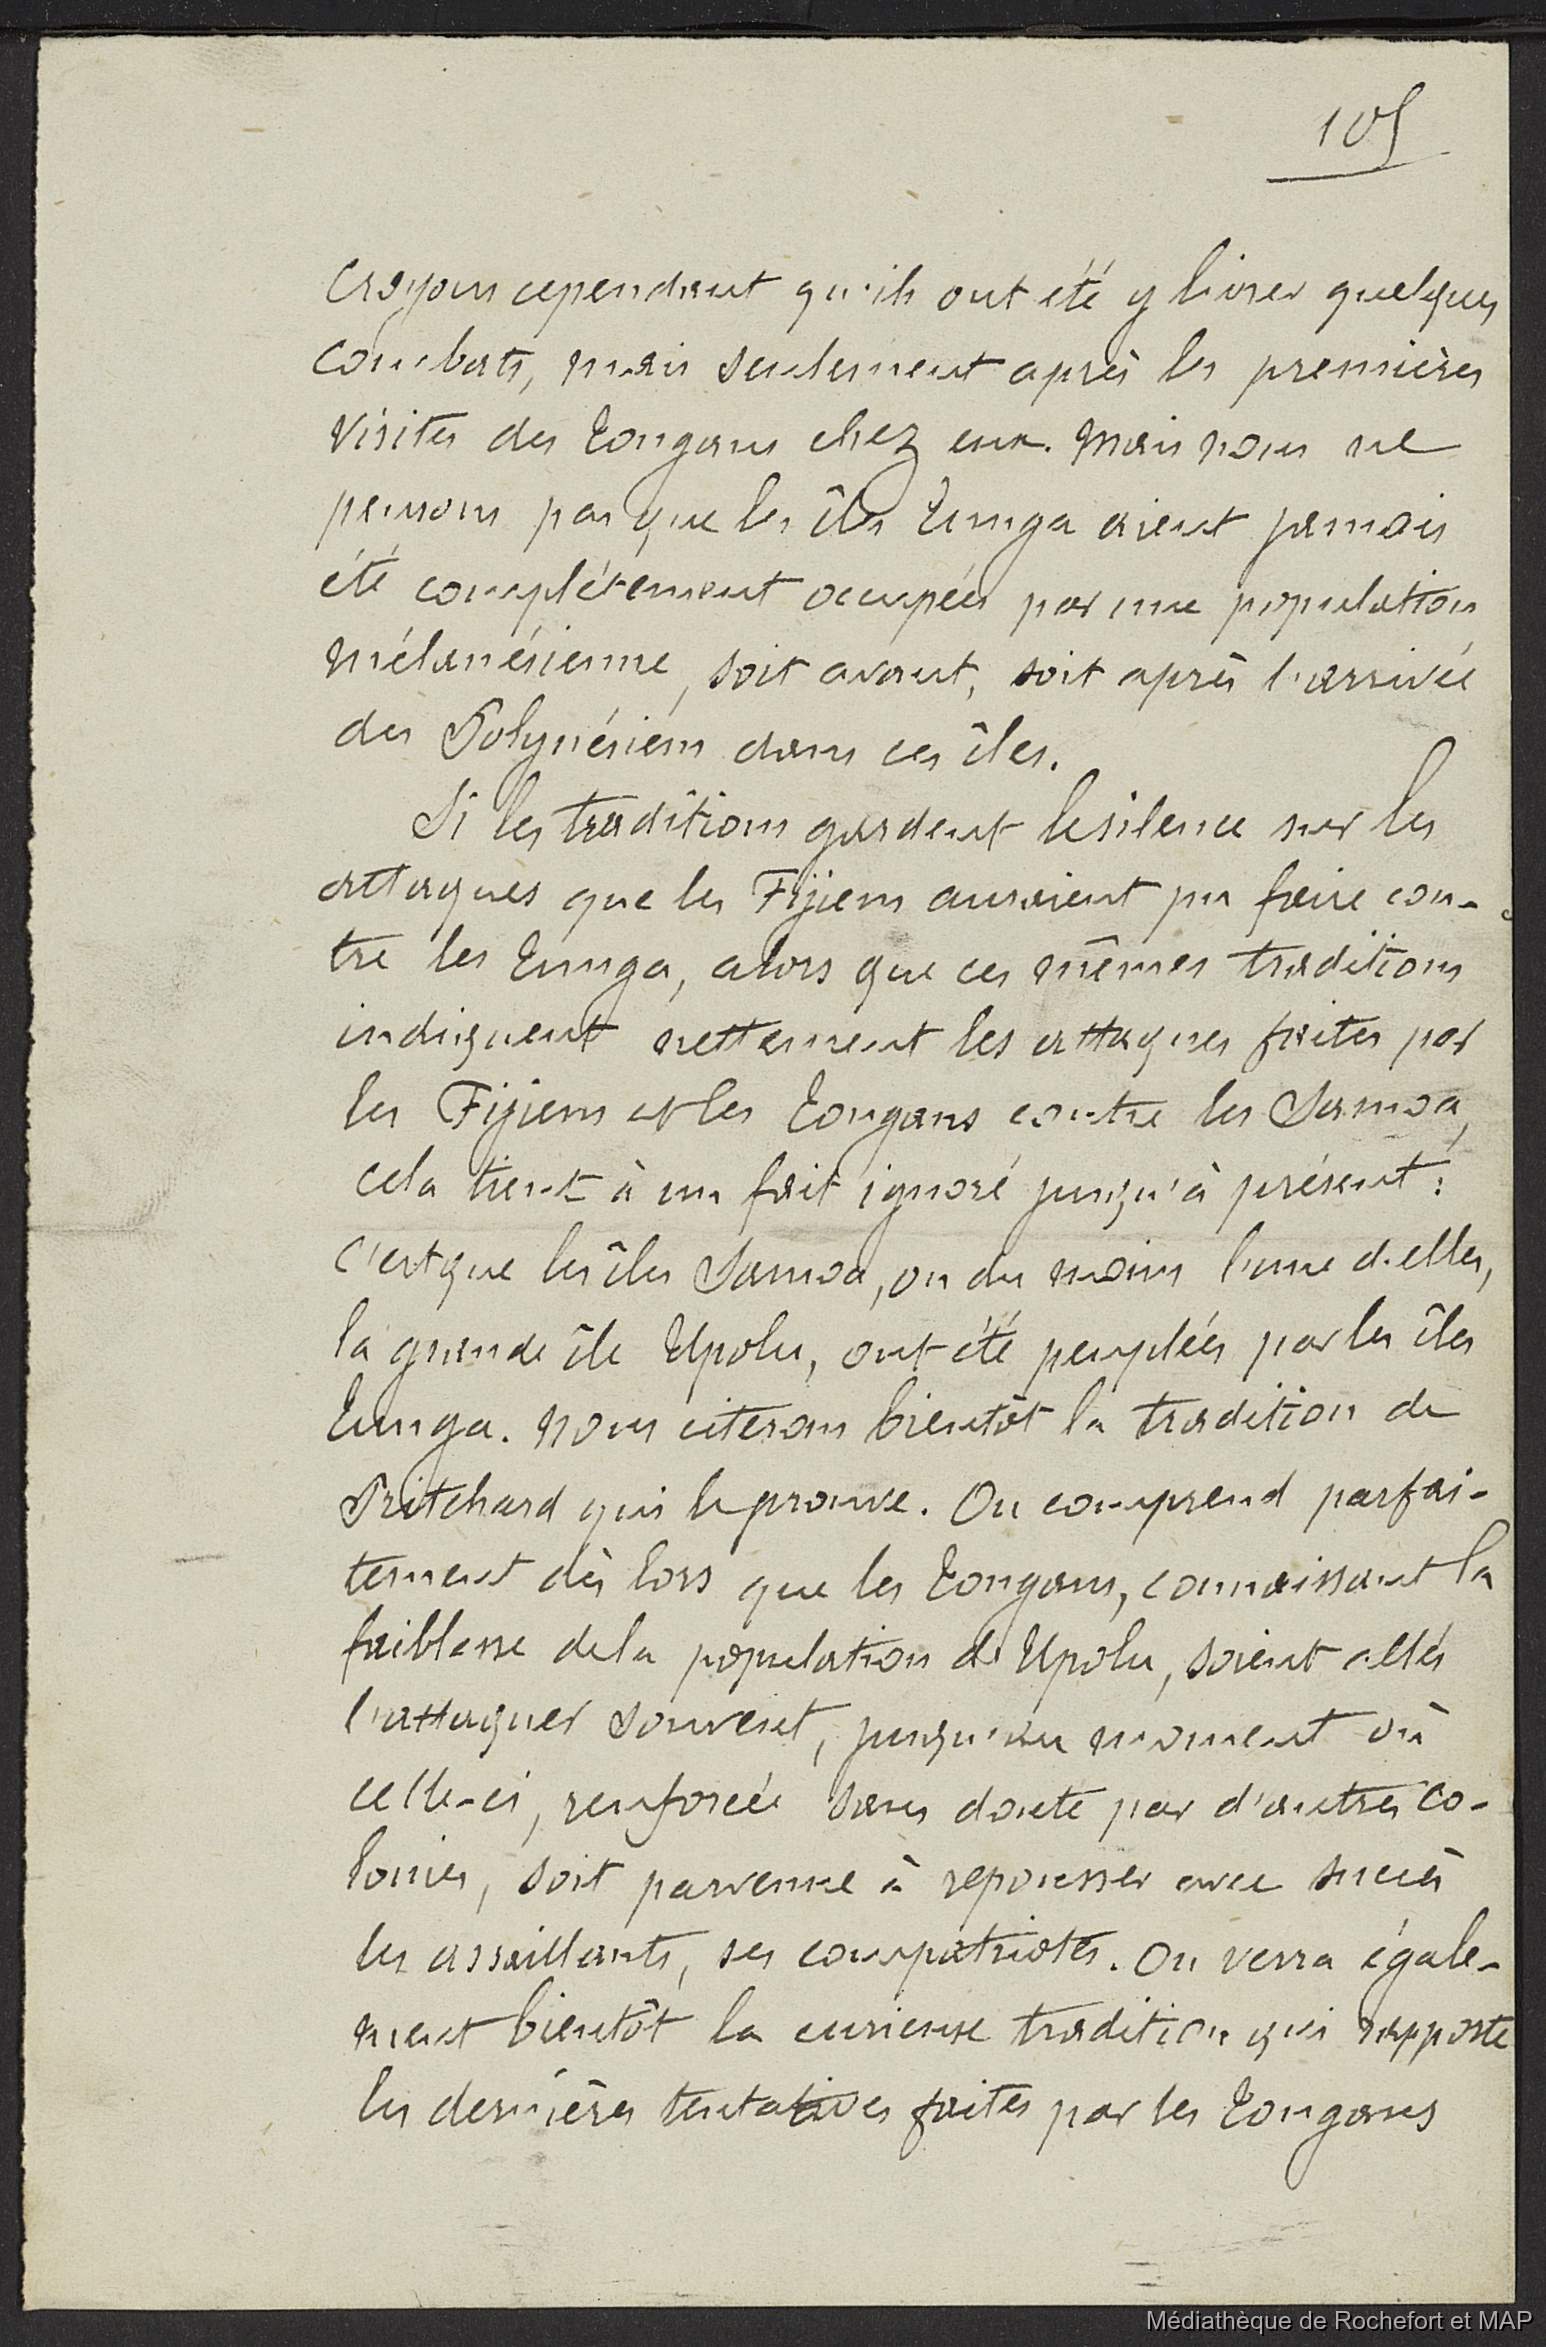 105
croyons cependant qu'ils ont été y livrer quelques
combats, mais seulement après les premières
visites des Tongans chez eux. Mais nous ne
pensons pas que les îles Tunga aient jamais
été complétement occupées par une population
mélanésienne, soit avant, soit après l'arrivée
des Polynésiens dans ces îles.
Si les traditions gardent le silence sur les
attaques que les Fijiens auraient pu faire con-
tre les Tunga, alors que ces mêmes traditions
indiquent nettement les attaques faites par
les Fijiens et les Tongans contre les Samoa,
cela tient à un fait ignoré jusqu'à présent :
c'est que les îles Samoa, ou du moins l'une d'elles,
la grande île Upolu, ont été peuplées par les îles
Tunga. Nous citerons bientôt la tradition de
Pritchard qui le prouve. On comprend parfai-
tement dès lors que les Tongans, connaissant la
faiblesse de la population de Upolu, soient allés
l'attaquer souvent, jusqu'au moment où
celle-ci, renforcée sans doute par d'autres co-
lonies, soit parvenue à repousser avec succès
les assaillants, ses compatriotes. On verra égale-
ment bientôt la curieuse tradition qui rapporte
les dernières tentatives faites par les Tongans
Médiathèque de Rochefort et MAP